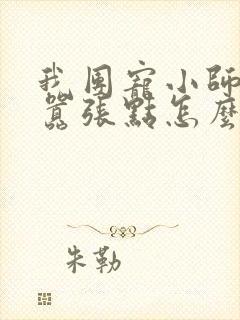 我团寵小師
囂張點怎麼
朱勒